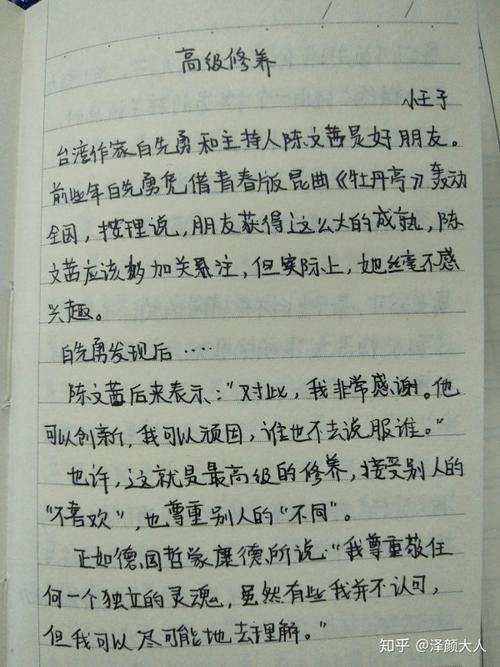 高级修养
小王子
台湾作家白先勇和主持人陈文茜是好朋友。
前些年白先勇凭借青春版昆曲《牡丹亭》轰动
全国，按理说，朋友获得这么大的成就，陈
文茜应该更加关注，但实际上，她丝毫不感
兴趣。
白先勇发现后····
陈文茜后来表示："对此，我非常感谢。他
可以创新，我可以顽固，谁也不去说服谁。"
也许，这就是最高级的修养，接受别人的
"不喜欢"，也尊重别人的"不同"。
正如德国哲学家康德所说："我尊敬任
何一个独立的灵魂，虽然有些我并不认可，
但我可以尽可能地去理解。"
知乎 @泽颜大人